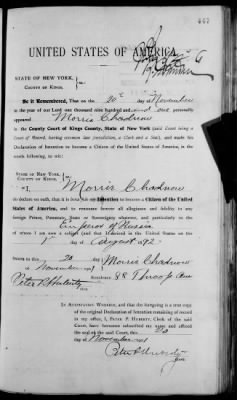 447
UNITED STATES OF AMERICA
STATE OF NEW YORK,
COUNTY OF KINGS,
ss.:
Be it Remembered, That on the 20th day of November
in the year of our Lord one thousand nine hundred and
appeared Morris Chadnow
in the County Court of Kings County, State of New York (said Court being a
Court of Record, having common law jurisdiction, a Clerk and a Seal), and made his
Declaration of Intention to become a Citizen of the United States of America, in the
words following, to wit:
STATE OF NEW YORK,
COUNTY OF KINGS,
ss.:
"I, Morris Chadnow
do declare on oath, that it is bona fide my intention to become a Citizen of the United
States of America, and to renounce forever all allegiance and fidelity to any
foreign Prince, Potentate, State or Sovereignty whatever, and particularly to the
Emperor of Russia
of whom I am now a subject (and that I arrived in the United States on the
1st day of August 1892
SWORN to this 20
day of November 1901
Morris Chadnow
Residence 88 Throop Ave
Peter P. Huberty
IN ATTESTATION WHEREOF, and that the foregoing is a true copy
of the original Declaration of Intention remaining of record
in my office, I, PETER P. HUBERTY, Clerk of the said
Court, have hereunto subscribed my name and affixed
the seal of the said Court, this 20
day of November 1901
Peter P. Huberty